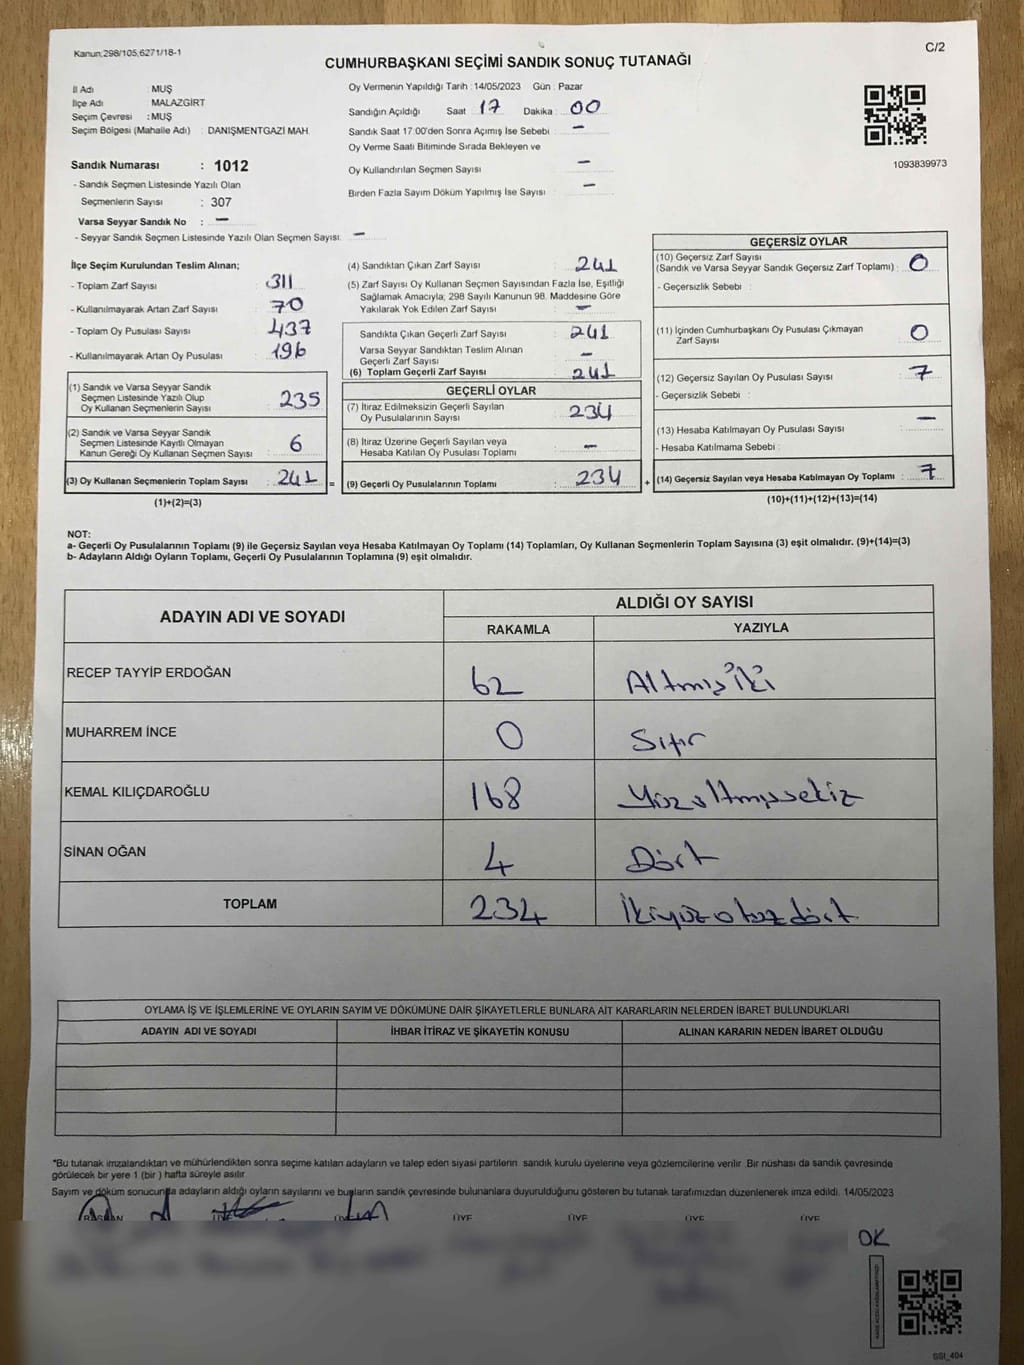 Kanun:298/105,6271/18-1
C/2
CUMHURBAŞKANI SEÇİMİ SANDIK SONUÇ TUTANAĞI
İl Adı : MUŞ
İlçe Adı MALAZGİRT
Seçim Çevresi : MUŞ
Seçim Bölgesi (Mahalle Adı) : DANİŞMENTGAZİ MAH.
Sandık Numarası : 1012
- Sandık Seçmen Listesinde Yazılı Olan
Seçmenlerin Sayısı : 307
Varsa Seyyar Sandık No : –
- Seyyar Sandık Seçmen Listesinde Yazılı Olan Seçmen Sayısı: –
Oy Vermenin Yapıldığı Tarih : 14/05/2023 Gün : Pazar
Sandığın Açıldığı Saat 17 Dakika : 00
Sandık Saat 17:00'den Sonra Açımış İse Sebebi : –
Oy Verme Saati Bitiminde Sırada Bekleyen ve
Oy Kullandırılan Seçmen Sayısı : –
Birden Fazla Sayım Döküm Yapılmış İse Sayısı : –
1093839973
İlçe Seçim Kurulundan Teslim Alınan;
- Toplam Zarf Sayısı : 311
- Kullanılmayarak Artan Zarf Sayısı : 70
- Toplam Oy Pusulası Sayısı : 437
- Kullanılmayarak Artan Oy Pusulası : 196
(1) Sandık ve Varsa Seyyar Sandık
Seçmen Listesinde Yazılı Olup
Oy Kullanan Seçmenlerin Sayısı : 235
(2) Sandık ve Varsa Seyyar Sandık
Seçmen Listesinde Kayıtlı Olmayan
Kanun Gereği Oy Kullanan Seçmen Sayısı : 6
(3) Oy Kullanan Seçmenlerin Toplam Sayısı : 241 =
(1)+(2)=(3)
(4) Sandıktan Çıkan Zarf Sayısı : 241
(5) Zarf Sayısı Oy Kullanan Seçmen Sayısından Fazla İse, Eşitliği
Sağlamak Amacıyla; 298 Sayılı Kanunun 98. Maddesine Göre
Yakılarak Yok Edilen Zarf Sayısı : –
Sandıkta Çıkan Geçerli Zarf Sayısı : 241
Varsa Seyyar Sandıktan Teslim Alınan
Geçerli Zarf Sayısı : –
(6) Toplam Geçerli Zarf Sayısı : 241
GEÇERLİ OYLAR
(7) İtiraz Edilmeksizin Geçerli Sayılan
Oy Pusulalarının Sayısı : 234
(8) İtiraz Üzerine Geçerli Sayılan veya
Hesaba Katılan Oy Pusulası Toplamı : –
(9) Geçerli Oy Pusulalarının Toplamı : 234 +
GEÇERSİZ OYLAR
(10) Geçersiz Zarf Sayısı
(Sandık ve Varsa Seyyar Sandık Geçersiz Zarf Toplamı) : 0
- Geçersizlik Sebebi :
(11) İçinden Cumhurbaşkanı Oy Pusulası Çıkmayan
Zarf Sayısı : 0
(12) Geçersiz Sayılan Oy Pusulası Sayısı : 7
- Geçersizlik Sebebi :
(13) Hesaba Katılmayan Oy Pusulası Sayısı : –
- Hesaba Katılmama Sebebi :
(14) Geçersiz Sayılan veya Hesaba Katılmayan Oy Toplamı : 7
(10)+(11)+(12)+(13)=(14)
NOT:
a- Geçerli Oy Pusulalarının Toplamı (9) ile Geçersiz Sayılan veya Hesaba Katılmayan Oy Toplamı (14) Toplamları, Oy Kullanan Seçmenlerin Toplam Sayısına (3) eşit olmalıdır. (9)+(14)=(3)
b- Adayların Aldığı Oyların Toplamı, Geçerli Oy Pusulalarının Toplamına (9) eşit olmalıdır.
ADAYIN ADI VE SOYADI ALDIĞI OY SAYISI
RAKAMLA YAZIYLA
RECEP TAYYİP ERDOĞAN 62 Altmış İki
MUHARREM İNCE 0 Sıfır
KEMAL KILIÇDAROĞLU 168 Yüzaltmışsekiz
SİNAN OĞAN 4 Dört
TOPLAM 234 İkiyüzotuzdört
OYLAMA İŞ VE İŞLEMLERİNE VE OYLARIN SAYIM VE DÖKÜMÜNE DAİR ŞİKAYETLERLE BUNLARA AİT KARARLARIN NELERDEN İBARET BULUNDUKLARI
ADAYIN ADI VE SOYADI İHBAR İTİRAZ VE ŞİKAYETİN KONUSU ALINAN KARARIN NEDEN İBARET OLDUĞU
*Bu tutanak imzalandıktan ve mühürlendikten sonra seçime katılan adayların ve talep eden siyasi partilerin sandık kurulu üyelerine veya gözlemcilerine verilir. Bir nüshası da sandık çevresinde
görülecek bir yere 1 (bir ) hafta süreyle asılır.
Sayım ve döküm sonucunda adayların aldığı oyların sayılarını ve bunların sandık çevresinde bulunanlara duyurulduğunu gösteren bu tutanak tarafımızdan düzenlenerek imza edildi. 14/05/2023
BAŞKAN ÜYE ÜYE ÜYE ÜYE ÜYE ÜYE
OK
SSİ_404